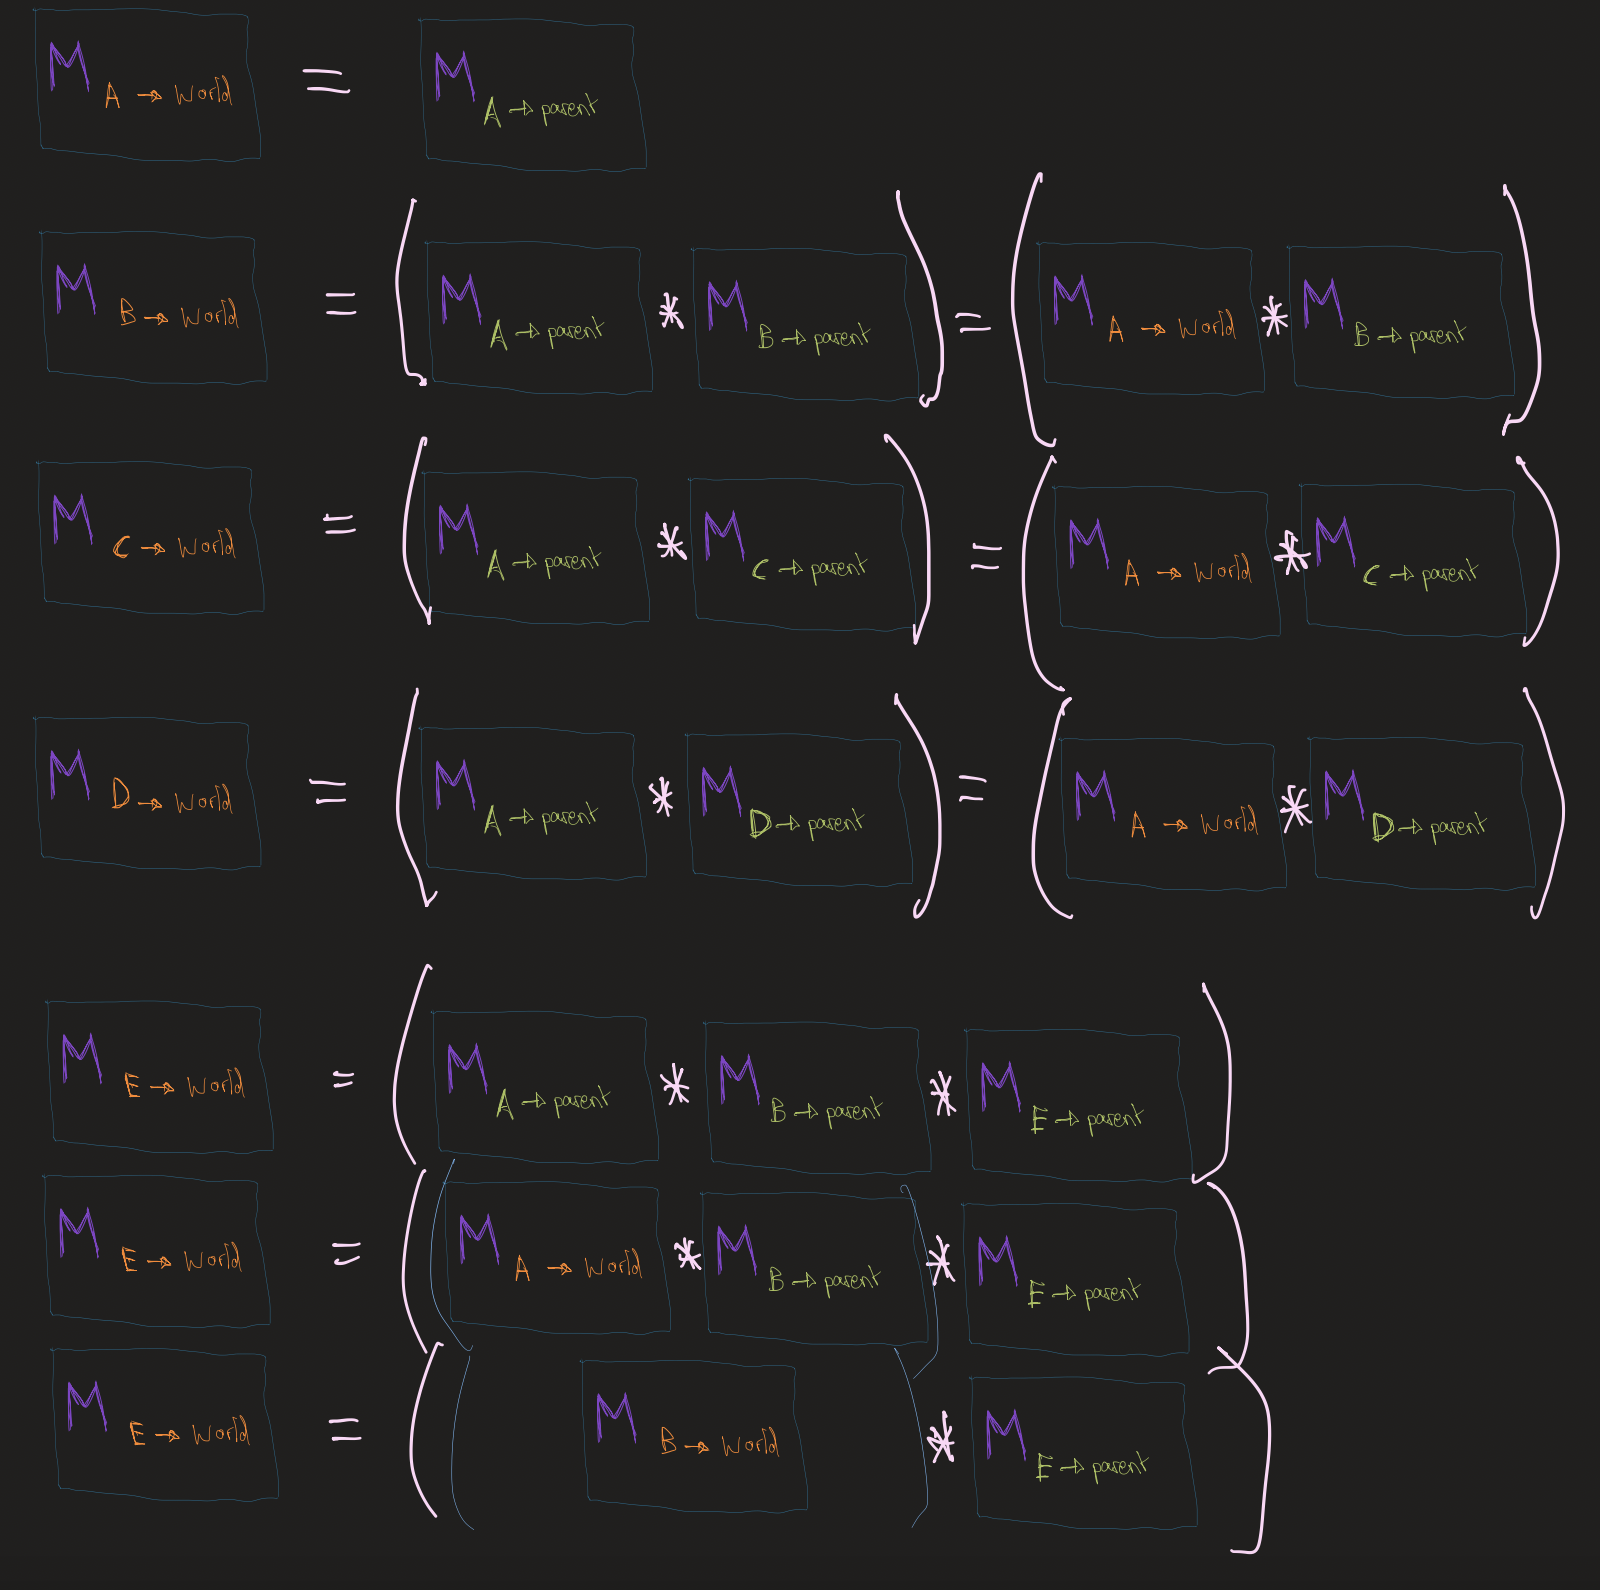 M A → World = M A → parent
M B → World = ( M A → parent * M B → parent ) = ( M A → World * M B → parent )
M C → World = ( M A → parent * M C → parent ) = ( M A → World * M C → parent )
M D → World = ( M A → parent * M D → parent ) = ( M A → World * M D → parent )
M E → World = ( M A → parent * M B → parent * M E → parent )
M E → World = ( ( M A → World * M B → parent ) * M E → parent )
M E → World = ( ( M B → World ) * M E → parent )